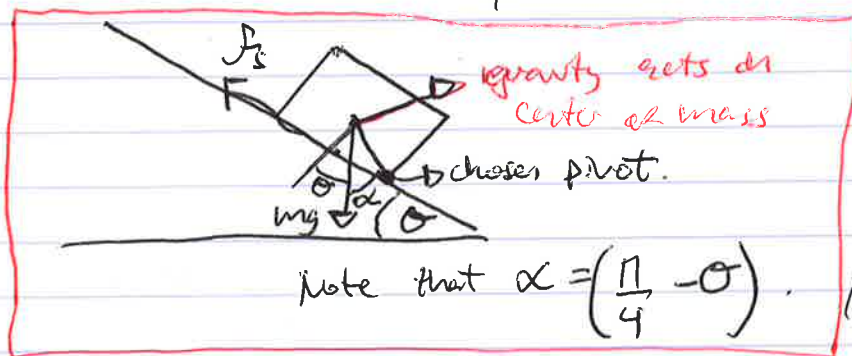 fs
gravity acts on
center of mass
chosen pivot.
θ α
mg θ
Note that α = (π/4 - θ).